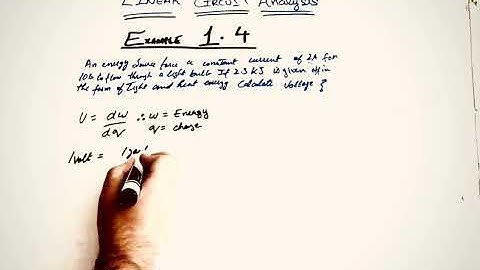 LINEAR CIRCUIT Analysis
EXAMPLE 1.4
An energy Source force a constant current of 2A for
10s to flow through a light bulb If 2.3 kJ is given off in
the form of light and heat energy Calculate Voltage ?
U = dw/dq ∴ w = Energy
q = charge
1volt = 1